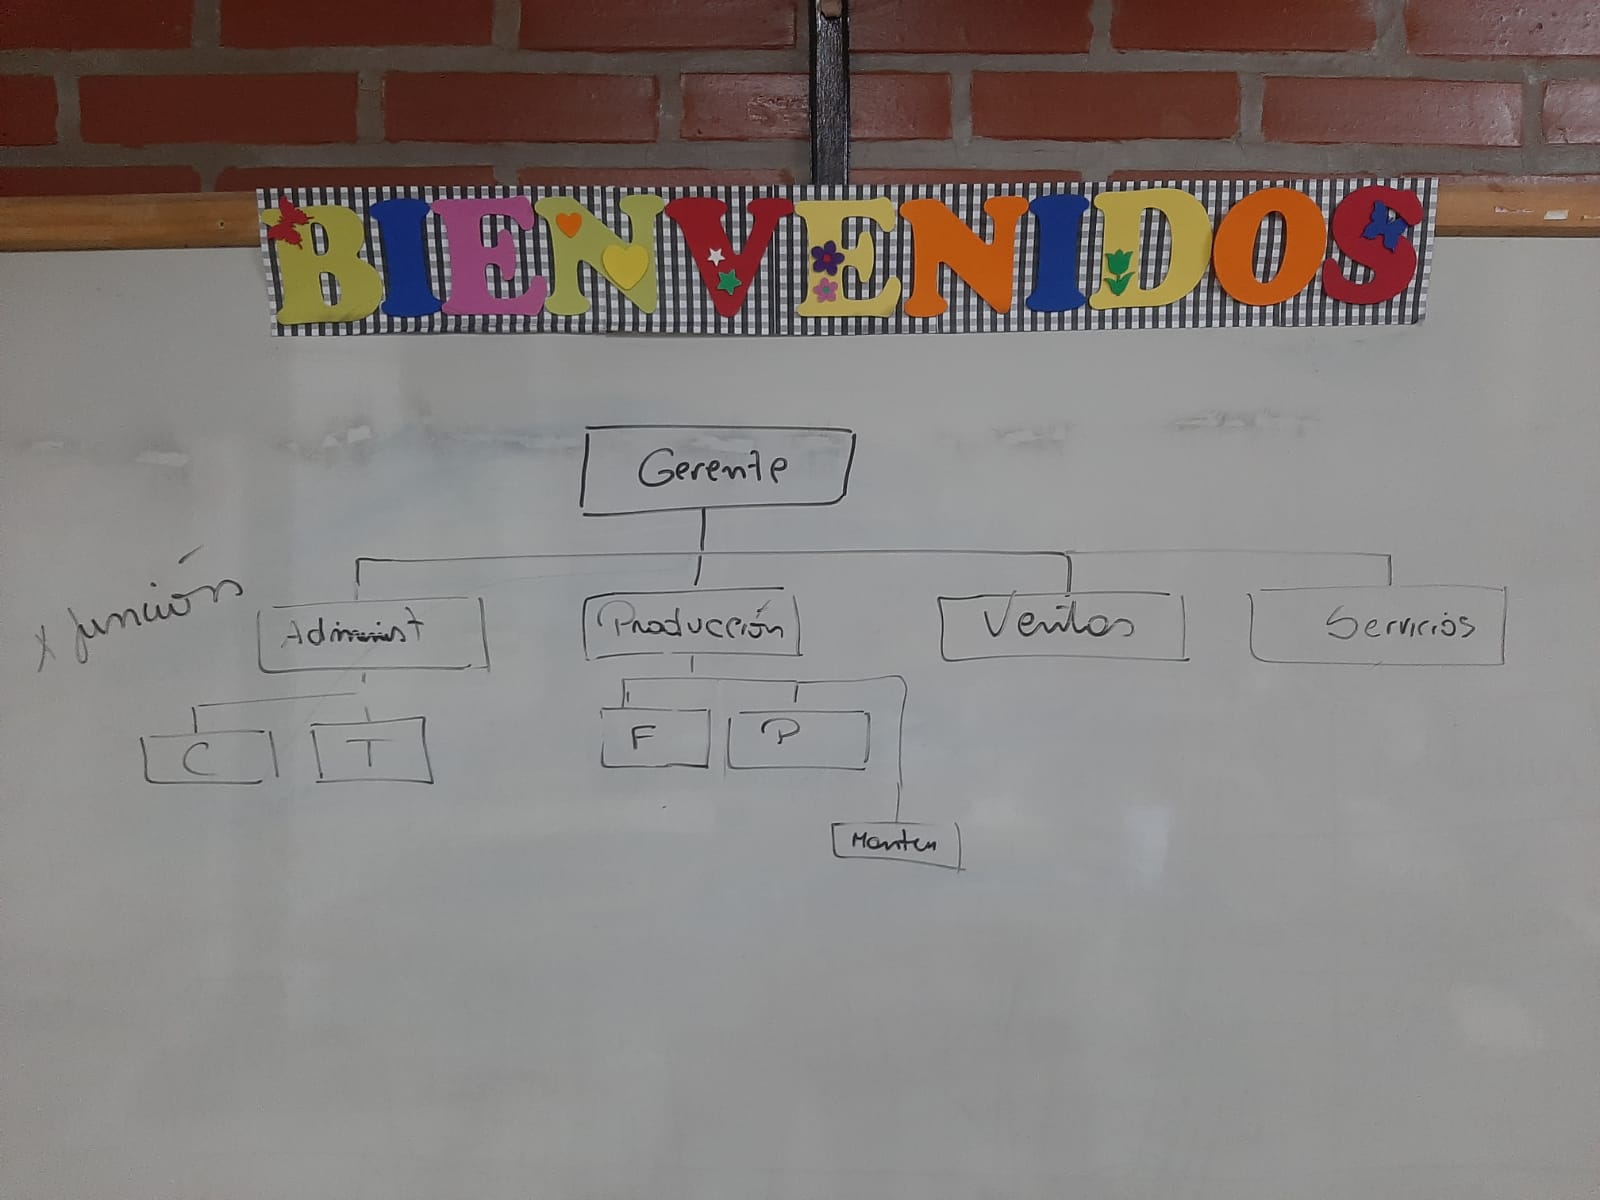 BIENVENIDOS
Gerente
x función
Administ
Producción
Ventas
Servicios
C
T
F
P
Manten